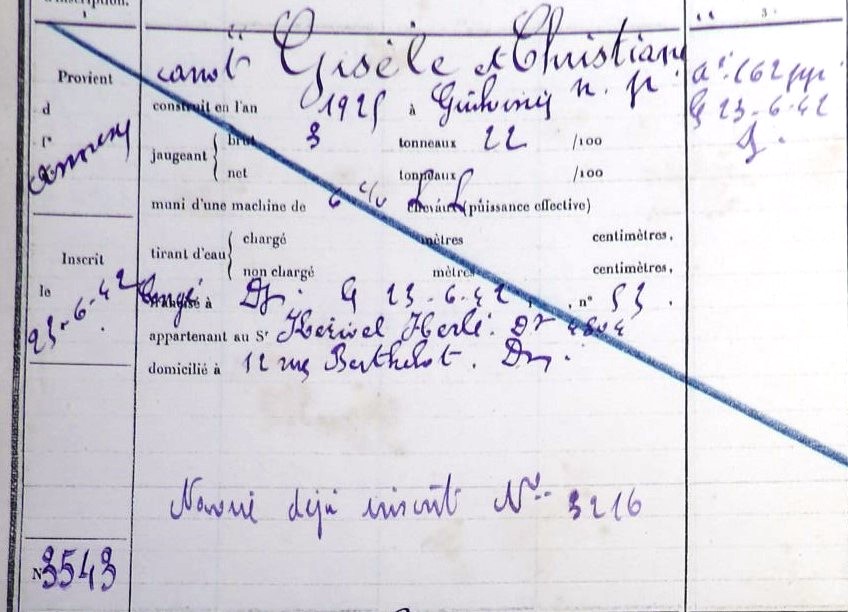 d'inscription.
1
3
canot Gisèle et Christiane n. p.
Provient
d
r.
construit en l'an 1925 à Guilvinec
jaugeant brut 3 tonneaux 22 /100
net tonneaux /100
muni d'une machine de 6 c/v chevaux (puissance effective)
tirant d'eau chargé mètres centimètres,
non chargé mètres centimètres,
Inscrit
le 23-6-42
Congé francisé à Dz. le 23-6-42, n° 53.
appartenant au Sr Hervel Herlé. Dz 4804
domicilié à 12 rue Berthelot. Dz.
le 23-6-42
Navire déjà inscrit N° 3216
N° 3543